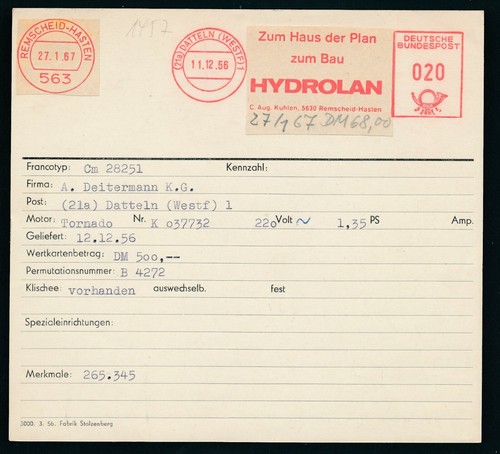 1457
REMSCHEID-HASTEN
27.1.67
563
(21a) DATTELN (WESTF) 1
11.12.56
Zum Haus der Plan
zum Bau
HYDROLAN
C. Aug. Kuhlen, 5630 Remscheid-Hasten
27/1 67 DM 68,00
DEUTSCHE
BUNDESPOST
020
Francotyp: Cm 28251 Kennzahl:
Firma: A. Deitermann K.G.
Post: (21a) Datteln (Westf) 1
Motor: Tornado Nr. K o37732 22o Volt ~ 1,35 PS Amp.
Geliefert: 12.12.56
Wertkartenbetrag: DM 5oo,--
Permutationsnummer: B 4272
Klischee: vorhanden auswechselb. fest
Spezialeinrichtungen:
Merkmale: 265.345
3000. 3. 56. Fabrik Stolzenberg